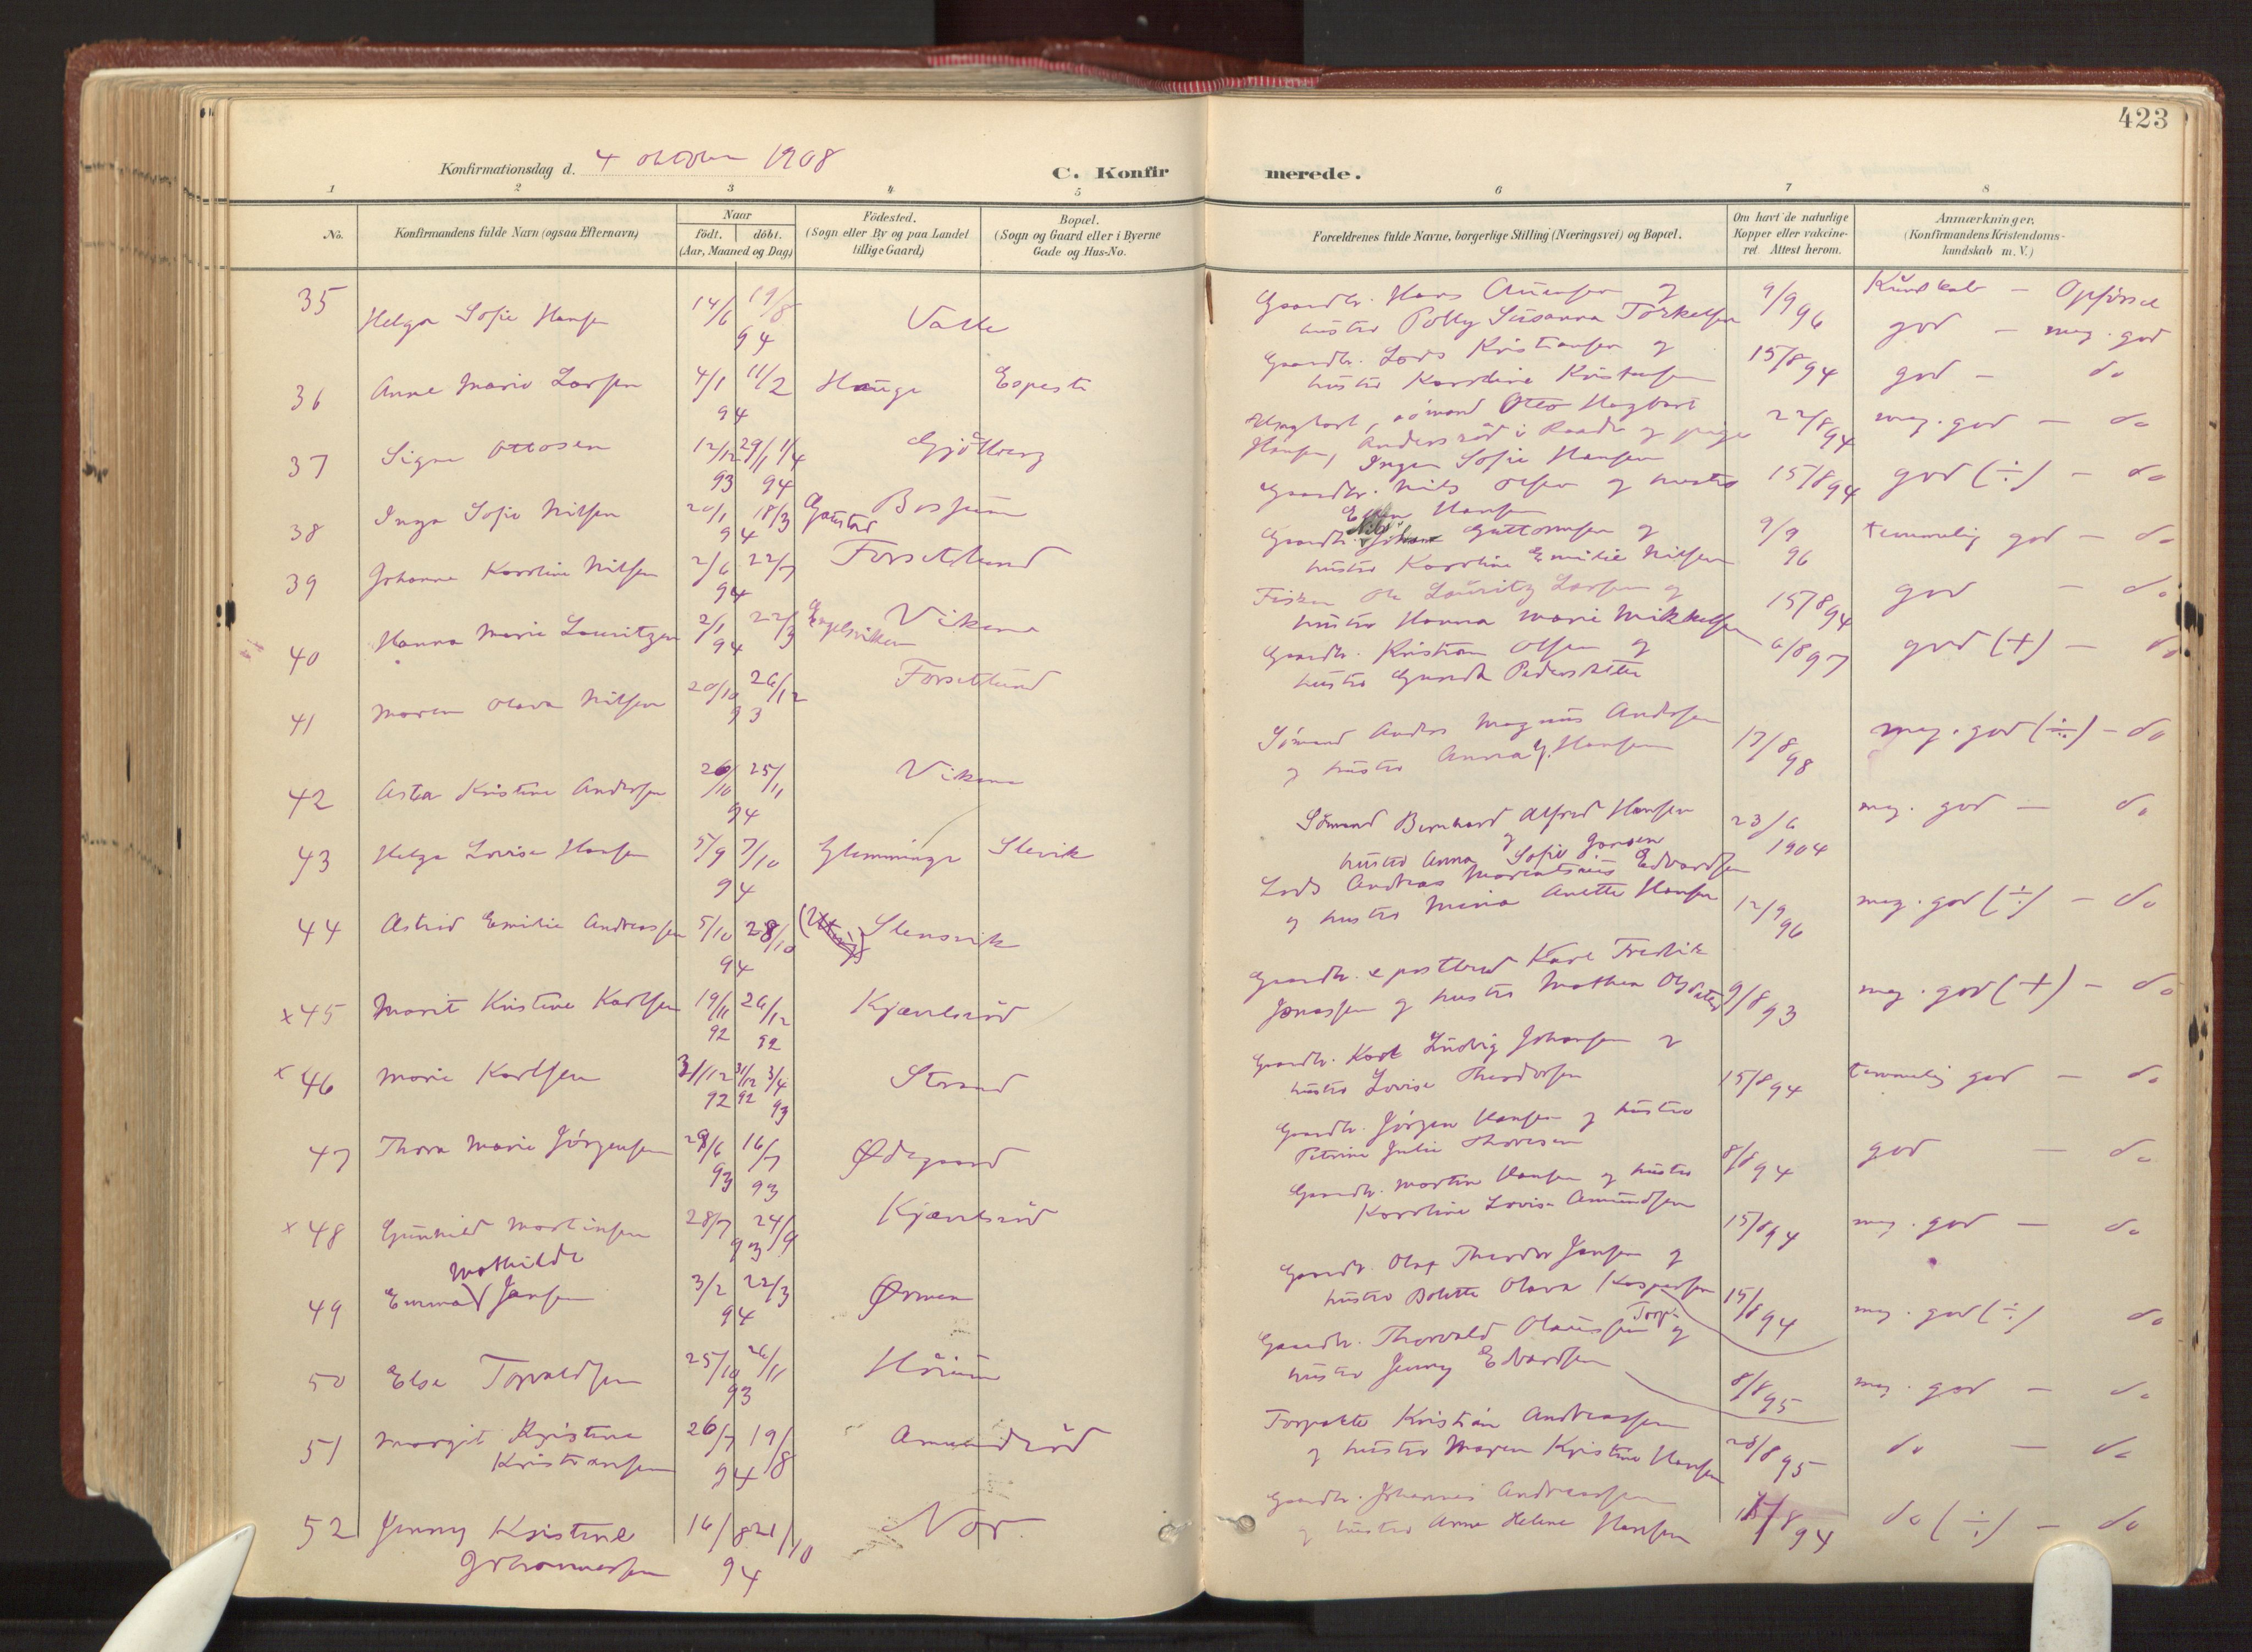 423
Konfirmationsdag d. 4 oktober 1908
C. Konfirmerede.
1 2 3 4 5 6 7 8
No.
Konfirmandens fulde Navn (ogsaa Efternavn)
Naar
födt. döbt.
(Aar, Maaned og Dag)
Födested.
(Sogn eller By og paa Landet
tillige Gaard)
Bopæl.
(Sogn og Gaard eller i Byerne
Gade og Hus-No.
Forældrenes fulde Navne, borgerlige Stilling (Næringsvei) og Bopæl.
Om havt de naturlige
Kopper eller vakcine-
ret. Attest herom.
Anmærkninger.
(Konfirmandens Kristendoms-
kundskab m. V.)
Kundskab – Opförsel
35 Helga Sofie Hansen 14/6 19/8 94 Valle
Gaardbr. Hans Ottensen og
hustru Polly Susanna Torkelsen 9/9 96 god – meg. god
36 Anne Marie Larsen 4/1 11/2 94 Hauge Espesti
Gaardbr. Lars Kristiansen og
hustru Karoline Kristensen 15/8 94 god – do
37 Signe Ottosen 12/12 93 29/1 1/4 94 Gjölberg
Ungkarl, sömand Otto Hagbart
Hansen, Andersröd i Raade og pige
Inger Sofie Hansen 22/8 94 meg. god – do
38 Inga Sofie Nilsen 20/1 18/3 94 Gaustad
Gaardbr. Nils Olsen og hustru
Hansen 15/8 94 god (÷) – do
39 Johanne Karoline Nilsen 2/6 22/7 94 Forsetlund
Gaardbr. Nils Guttormsen og
hustru Karoline Emilie Nilsen 9/9 96 temmelig god – do
40 Hanna Marie Lauritzen 2/1 22/3 94 Engelsviken Vikene
Fisker Ole Lauritz Larsen og
hustru Hanna Marie Mikkelsen 15/8 94 god – do
41 Maren Olava Nilsen 20/10 26/12 93 Forsetlund
Gaardbr. Kristian Olsen og
hustru Pedersdatter 6/8 97 god (+) – do
42 Asta Kristine Andersen 26/10 25/11 94 Vikene
Sömand Anders Magnus Andersen
og hustru Anna G. Hansen 17/8 98 meg. god (÷) – do
43 Helga Lovise Hansen 5/9 7/10 94 Glemminge Slevik
Sömand Bernhard Alfred Hansen
og
hustru Anna Sofie Jansen 23/6 1904 meg. god – do
44 Astrid Emilie Andreassen 5/10 28/10 94 Slensvik
Lods Andreas Edvardsen
og hustru Mina Anette Hansen 12/9 96 meg. god (÷) – do
x 45 Marit Kristine Karlsen 19/11 92 26/12 92 Kjærelsröd
Gaardbr. & postbud Karl Fredrik
Jonassen og hustru Mathea Olsdatter 9/8 93 meg. god (+) – do
x 46 Marie Karlsen 31/12 92 31/12 92 3/4 93 Strand
Gaardbr. Karl Ludvig Johansen og
hustru Lovise Theodorsen 15/8 94 temmelig god – do
47 Thora Marie Jörgensen 29/6 93 16/7 93 Ødegaard
Gaardbr. Jörgen Hansen og hustru
Petrine Julie Thoresen 8/8 94 god – do
x 48 Gunhild Martinsen 28/7 24/9 93 Kjærelsröd
Gaardbr. Martin Hansen og hustru
Karoline Lovise Amundsen 15/8 94 meg. god – do
Mathilde
49 Emma Jansen 3/2 22/3 94 Ørmen
Gaardbr. Olaf Theodor Jansen og
hustru Bolette Olava Kaspersen 15/8 94 meg. god (÷) do
50 Else Torvaldsen 25/10 26/11 93 Hörum
Gaardbr. Thorvald Olaussen og
hustru Jenny Edvardsen 8/8 95 meg. god – do
51 Margit Kristine
Kristiansen 26/7 19/8 94 Amundröd
Forpakter Kristian Andreassen
og hustru Maren Kristine Hansen 28/8 95 do – do
52 Jenny Kristine
Johannessen 16/8 21/10 94 Nor
Gaardbr. Johannes Andreassen
og hustru Anne Helene Hansen 15/8 94 do (÷) – do